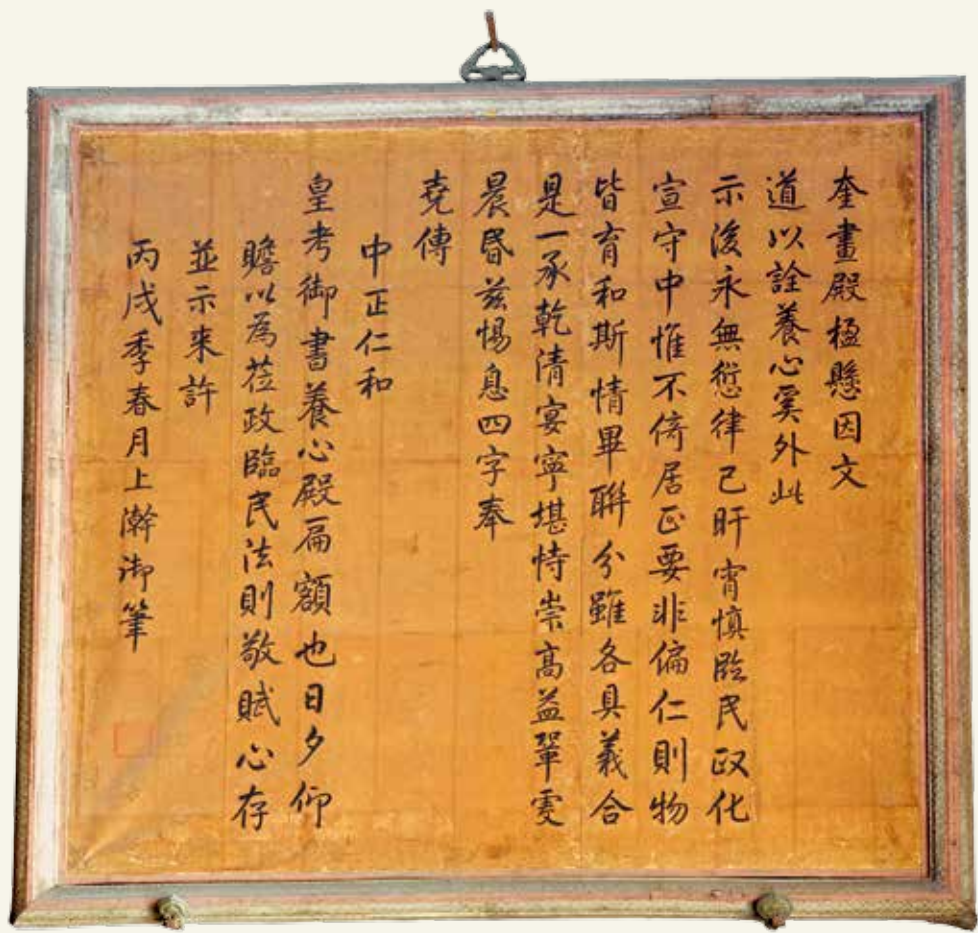 奎畫殿楹懸因文
道以詮養心寞外此
示後永無愆律己旰宵慎臨民政化
宣守中惟不倚居正要非偏仁則物
皆育和斯情畢聯分雖各具義合
是一承乾清宴寧堪恃崇高益鞏虔
晨昏茲惕息四字奉
堯傳
中正仁和
皇考御書養心殿扁額也日夕仰
瞻以為莅政臨民法則敬賦心存
並示來許
丙戌季春月上澣御筆